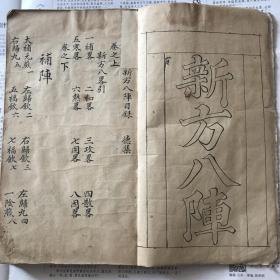 新方八陣
新方八陣目錄 德集
卷之上
新方八畧引
一補畧 二和畧 三攻畧 四散畧
五寒畧 六熱畧 七固畧 八因畧
卷之下
補陣
大補元煎一 左歸飲二 右歸飲三 左歸丸四
右歸丸五 五福飲六 七福飲七 一陰煎八